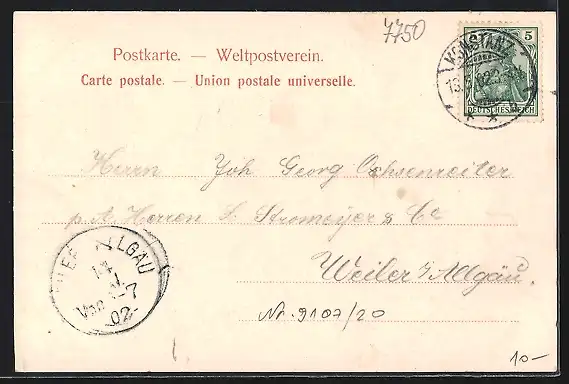 7750
Postkarte. — Weltpostverein.
Carte postale. — Union postale universelle.
5
DEUTSCHES REICH
KONSTANZ
Herrn Joh Georg Ochsenreiter
p. A. Herren L Stromeyer & Cie
Weiler i/Allgäu.
ALLGAU
Vm. 6-7
02
Nr. 9107/20
10-